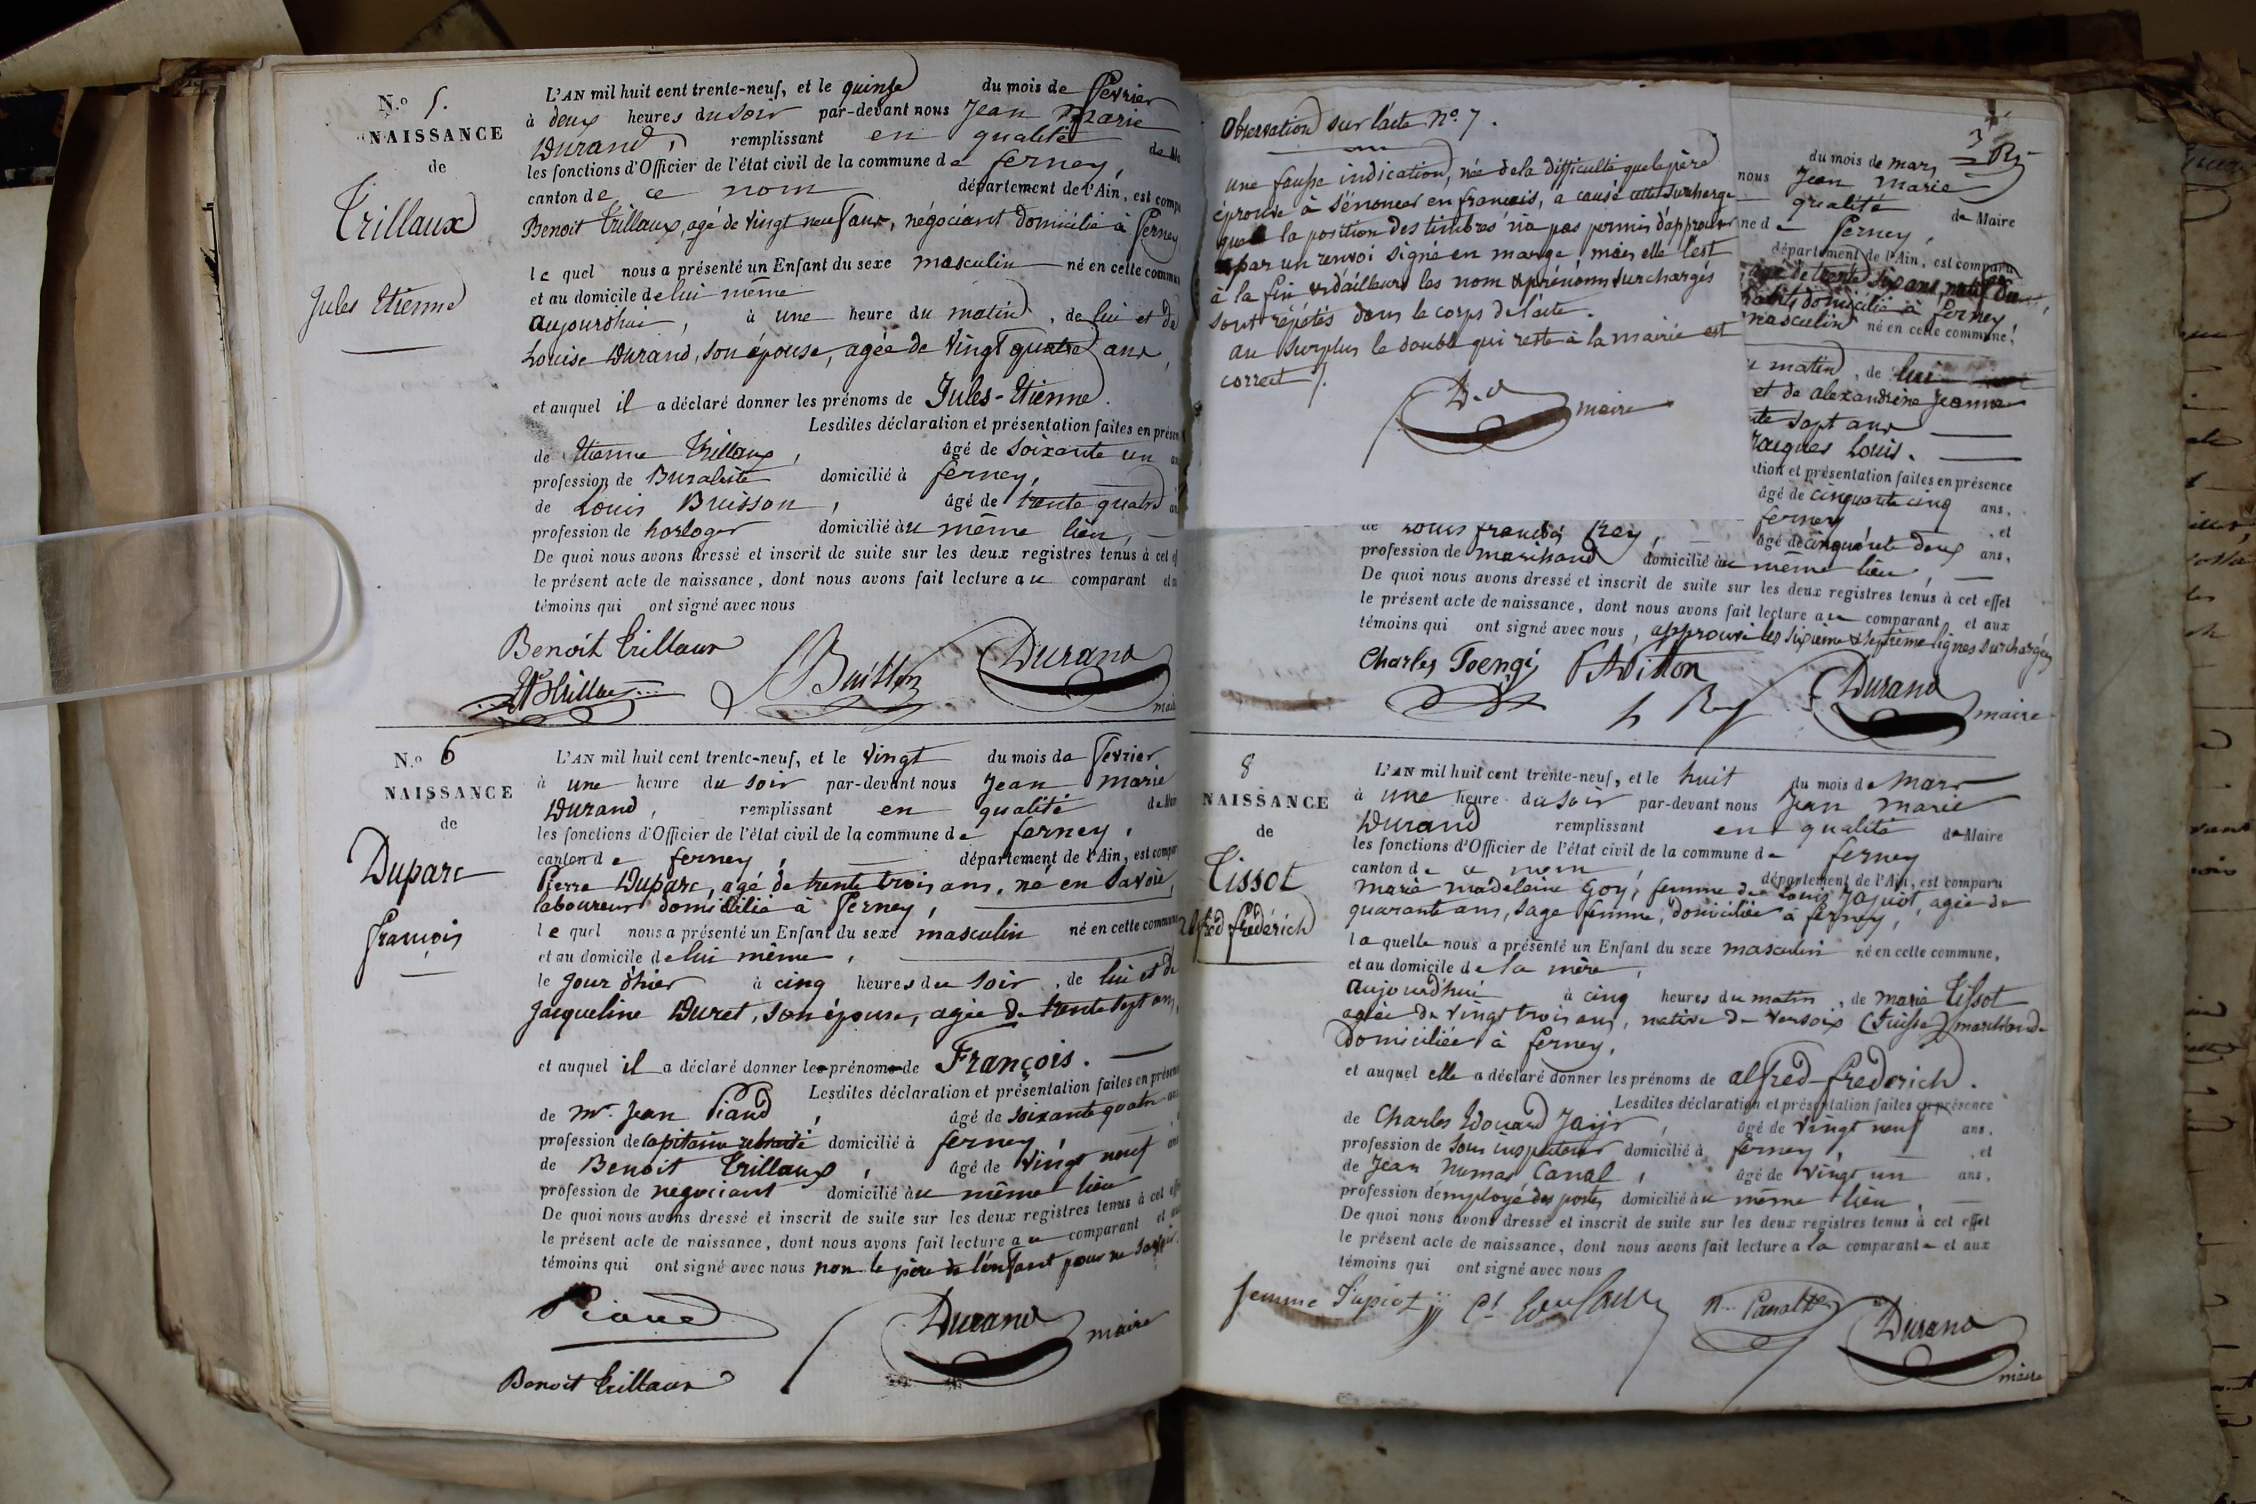 N.o 5.
NAISSANCE
de
Trillaux
Jules Etienne
L'AN mil huit cent trente-neuf, et le quinze du mois de fevrier
à deux heures du soir par-devant nous Jean Marie
Durand, remplissant en qualité de
les fonctions d'Officier de l'état civil de la commune de ferney,
canton de ce nom département de l'Ain, est comp
Benoit Trillaux, agé de vingt neuf ans, négociant domicilié à ferney
le quel nous a présenté un Enfant du sexe masculin né en cette commu
et au domicile de lui même
aujourdhui, à une heure du matin, de lui et de
Louise Durand, son épouse, agée de vingt quatre ans,
et auquel il a déclaré donner les prénoms de Jules-Etienne.
Lesdites déclaration et présentation faites en présen
de Etienne Trillaux, âgé de soixante un
profession de Buraliste domicilié à ferney,
de Louis Buisson, âgé de trente quatre
profession de horloger domicilié au même lieu,
De quoi nous avons dressé et inscrit de suite sur les deux registres tenus à cet
le présent acte de naissance, dont nous avons fait lecture au comparant et
témoins qui ont signé avec nous
Benoit Trillaux
Trillaux Buisson Durand
N.o 6
NAISSANCE
de
Duparc
françois
L'AN mil huit cent trente-neuf, et le vingt du mois de fevrier
à une heure du soir par-devant nous Jean marie
Durand, remplissant en qualité de
les fonctions d'Officier de l'état civil de la commune de ferney,
canton de ferney, département de l'Ain, est compa
Pierre Duparc, agé de trente trois ans, né en Savoie,
laboureur domicilié à ferney,
le quel nous a présenté un Enfant du sexe masculin né en cette commune
et au domicile de lui même,
le jour d'hier à cinq heures du soir, de lui et de
Jacqueline Duret, son épouse, agée de trente sept ans,
et auquel il a déclaré donner le prénom de François.
Lesdites déclaration et présentation faites en présen
de mr. Jean Piaud, âgé de soixante quatre
profession de capitaine retraité domicilié à ferney,
de Benoit Trillaux, âgé de vingt neuf
profession de negociant domicilié au même lieu
De quoi nous avons dressé et inscrit de suite sur les deux registres tenus à cet
le présent acte de naissance, dont nous avons fait lecture au comparant et
témoins qui ont signé avec nous non le père de l'enfant pour ne savoir.
Piaud Durand maire
Benoit Trillaux
Observation sur l'acte No. 7.
une fausse indication, née de la difficulté que le père
éprouve à s'énoncer en francais, a causé cette surcharge
que la position des timbres n'a pas permis d'approuver
par un renvoi signé en marge, mais elle l'est
à la fin & d'ailleurs les nom & prénoms surchargés
sont répétés dans le corps de l'acte.
au surplus le double qui reste à la mairie est
correct /.
D.d maire
3
du mois de mars
nous Jean Marie
qualité de Maire
ne de ferney,
département de l'Ain, est comparu
agé de trente six ans, natif de
domicilié à ferney,
masculin né en cette commune,
matin, de lui
et de alexandrine Jeanne
sept ans
Jacques Louis.
tion et présentation faites en présence
âgé de cinquante cinq ans,
ferney, et
de Louis francois Rey, âgé de cinquante deux ans,
profession de marchand domicilié au même lieu,
De quoi nous avons dressé et inscrit de suite sur les deux registres tenus à cet effet
le présent acte de naissance, dont nous avons fait lecture au comparant et aux
témoins qui ont signé avec nous, approuvé les sixieme & septième lignes surchargées
Charles Toengi
L Rey Durand maire
8
NAISSANCE
de
Tissot
alfred frédérich
L'AN mil huit cent trente-neuf, et le huit du mois de mars
à une heure du soir par-devant nous Jean marie
Durand remplissant en qualité de Maire
les fonctions d'Officier de l'état civil de la commune de ferney
canton de ce nom, département de l'Ain, est comparu
marie madelaine Goy, femme de Louis Jaquot, agée de
quarante ans, sage femme, domiciliée à ferney,
la quelle nous a présenté un Enfant du sexe masculin né en cette commune,
et au domicile de la mère,
aujourd'hui à cinq heures du matin, de marie Tissot
agée de vingt trois ans, native de versoix (Suisse) marchande
domiciliée à ferney,
et auquel elle a déclaré donner les prénoms de alfred-frederich.
Lesdites déclaration et présentation faites en présence
de Charles Edouard, âgé de vingt neuf ans,
profession de sous inspecteur domicilié à ferney, et
de Jean Numas Canal, âgé de vingt un ans,
profession d'employé des postes domicilié au même lieu,
De quoi nous avons dressé et inscrit de suite sur les deux registres tenus à cet effet
le présent acte de naissance, dont nous avons fait lecture a la comparante et aux
témoins qui ont signé avec nous
femme Durand
maire